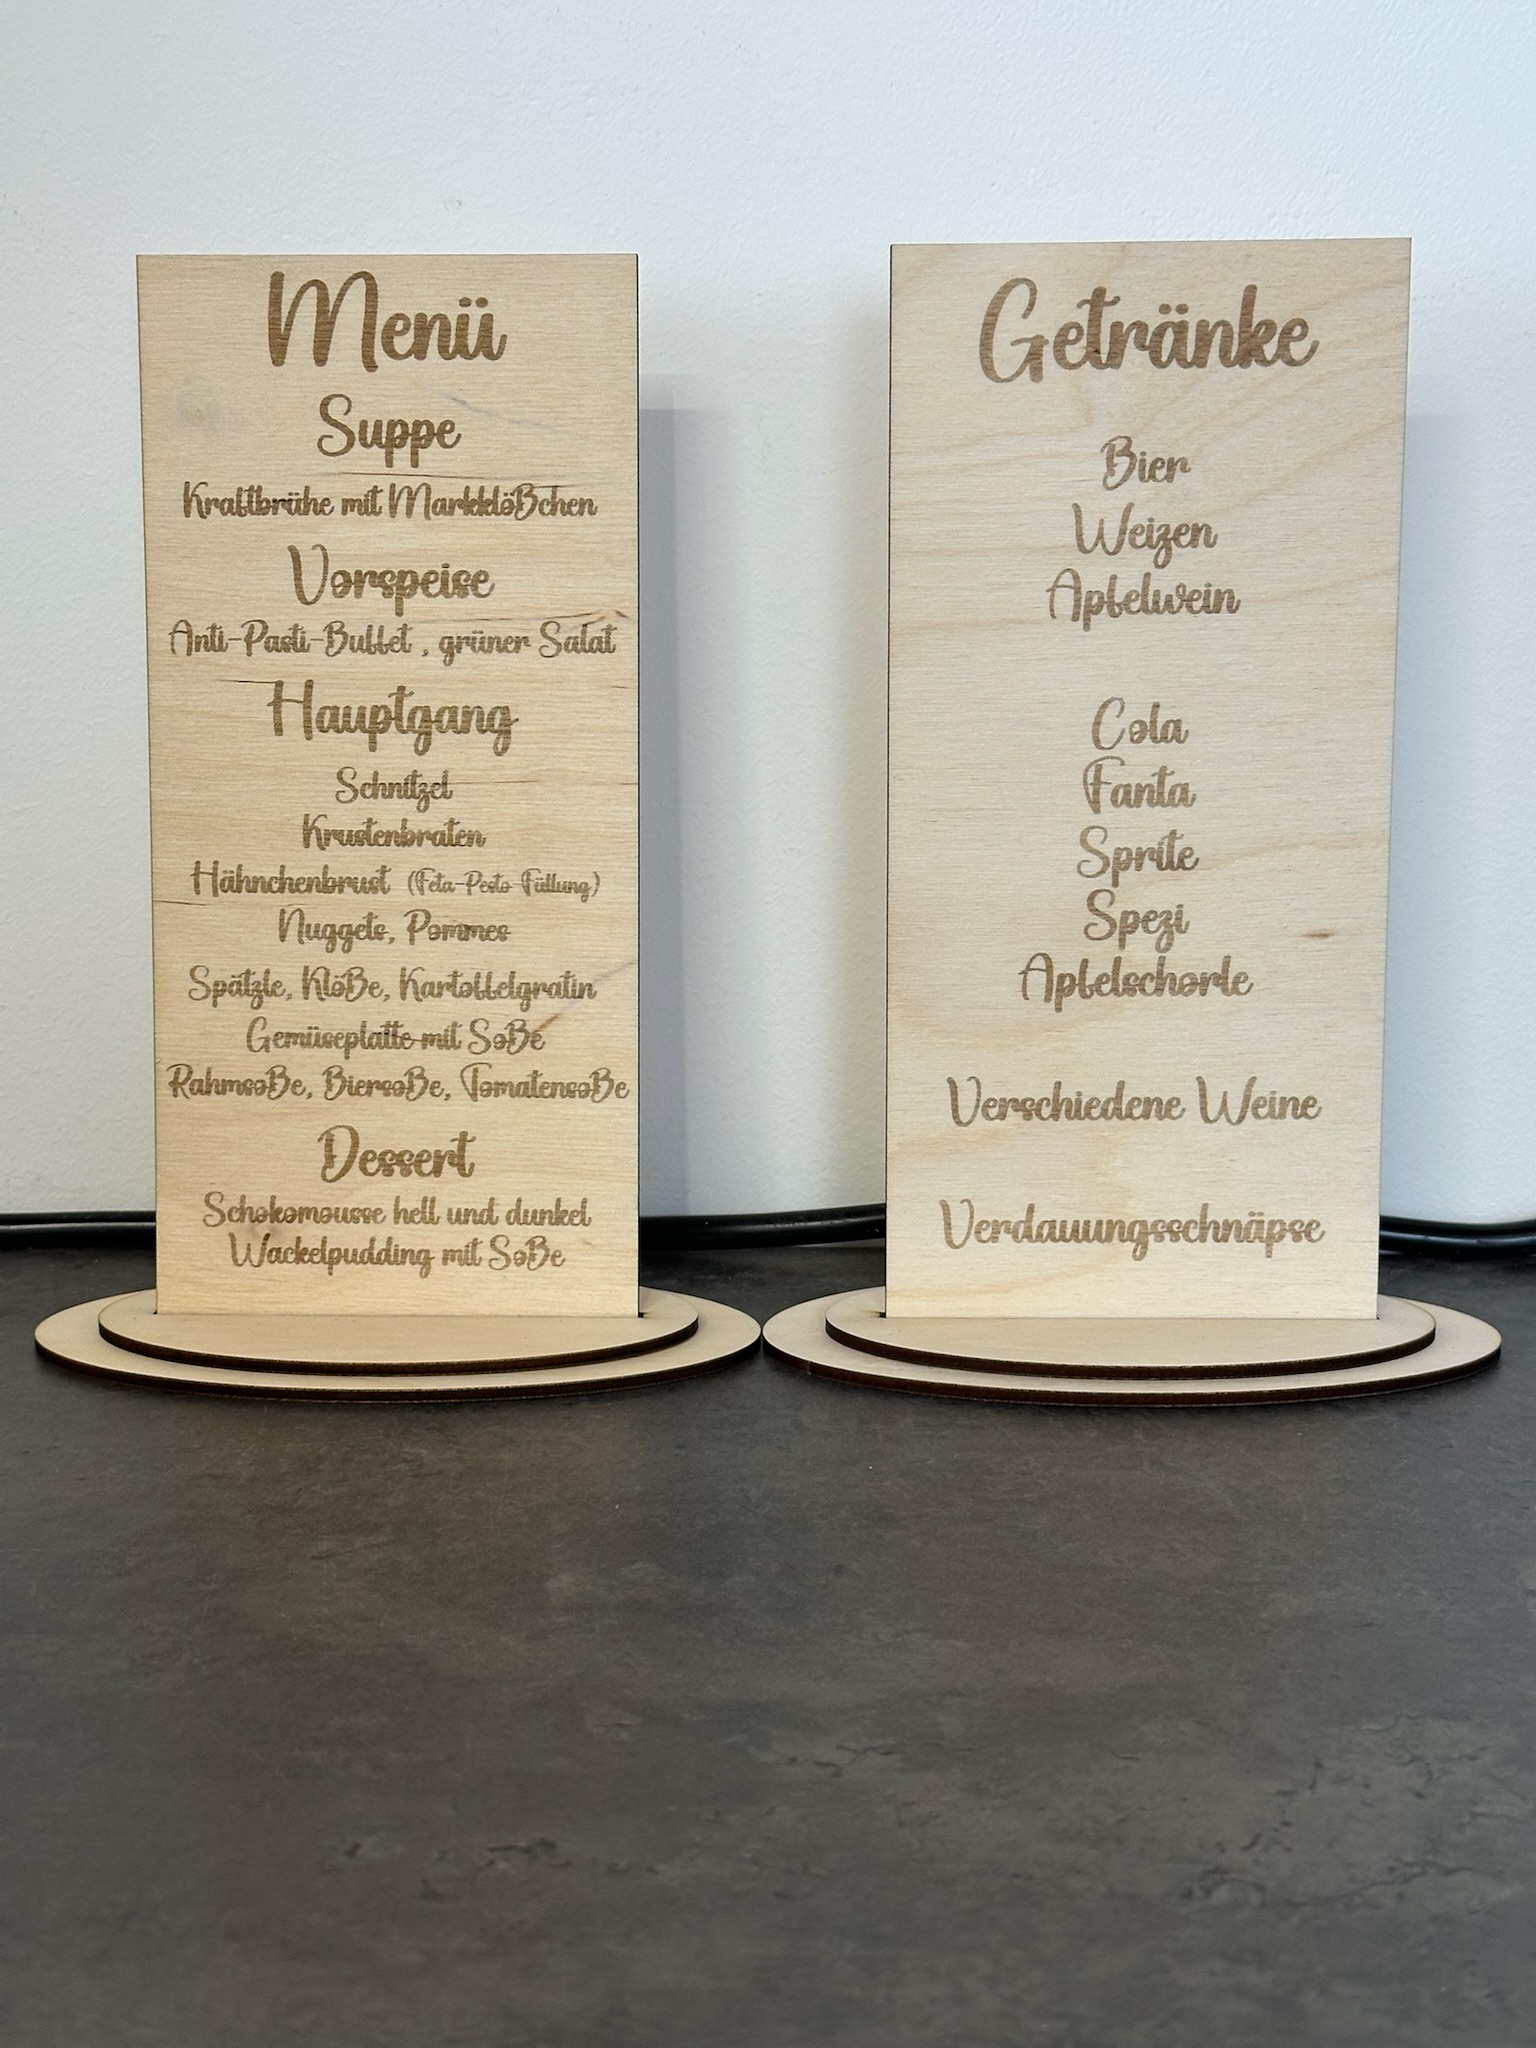 Menü
Suppe
Kraftbrühe mit Markklößchen
Vorspeise
Anti-Pasti-Buffet , grüner Salat
Hauptgang
Schnitzel
Krustenbraten
Hähnchenbrust (Feta-Pesto-Füllung)
Nuggets, Pommes
Spätzle, Klöße, Kartoffelgratin
Gemüseplatte mit Soße
Rahmsoße, Biersoße, Tomatensoße
Dessert
Schokomousse hell und dunkel
Wackelpudding mit Soße
Getränke
Bier
Weizen
Apfelwein
Cola
Fanta
Sprite
Spezi
Apfelschorle
Verschiedene Weine
Verdauungsschnäpse